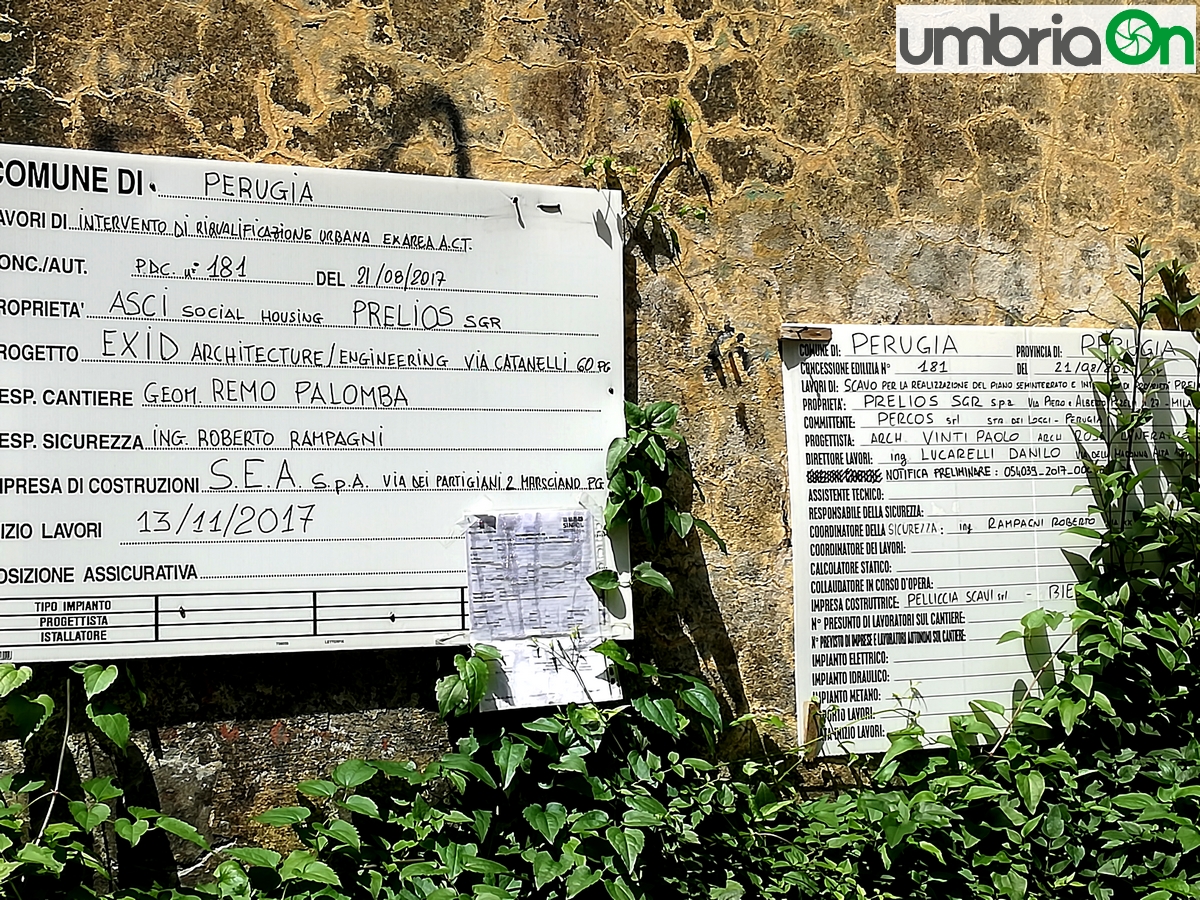 umbriaOn
COMUNE DI PERUGIA
AVORI DI INTERVENTO DI RIQUALIFICAZIONE URBANA EX AREA A.C.T.
ONC./AUT. P.D.C. n° 181 DEL 21/08/2017
ROPRIETA' ASCI SOCIAL HOUSING PRELIOS SGR
ROGETTO EXID ARCHITECTURE/ENGINEERING VIA CATANELLI 60 PG
ESP. CANTIERE GEOM. REMO PALOMBA
ESP. SICUREZZA ING. ROBERTO RAMPAGNI
MPRESA DI COSTRUZIONI S.E.A. S.p.A. VIA DEI PARTIGIANI 2 MARSCIANO PG
NIZIO LAVORI 13/11/2017
OSIZIONE ASSICURATIVA
TIPO IMPIANTO
PROGETTISTA
ISTALLATORE
COMUNE DI: PERUGIA PROVINCIA DI: PERUGIA
CONCESSIONE EDILIZIA N° 181 DEL 21/08/201
LAVORI DI: SCAVO PER LA REALIZZAZIONE DEL PIANO SEMINTERRATO E DI PROPRIETÀ PRE
PROPRIETÀ: PRELIOS SGR S.p.a. VIA PIERO E ALBERTO 27 - MILA
COMMITTENTE: PERCOS srl STR. DEI LOGGI - PERUGIA
PROGETTISTA: ARCH. VINTI PAOLO ARCH
DIRETTORE LAVORI: ing LUCARELLI DANILO VIA DELLA MADONNA ALTA
NOTIFICA PRELIMINARE: 054039-2017-00
ASSISTENTE TECNICO:
RESPONSABILE DELLA SICUREZZA:
COORDINATORE DELLA SICUREZZA: ing. RAMPAGNI ROBERTO
COORDINATORE DEI LAVORI:
CALCOLATORE STATICO:
COLLAUDATORE IN CORSO D'OPERA:
IMPRESA COSTRUTTRICE: PELLICCIA SCAVI srl - BIE
N° PRESUNTO DI LAVORATORI SUL CANTIERE:
N° PREVISTO DI IMPRESE E LAVORATORI AUTONOMI SUL CANTIERE:
IMPIANTO ELETTRICO:
IMPIANTO IDRAULICO:
IMPIANTO METANO:
LAVORI:
INIZIO LAVORI: